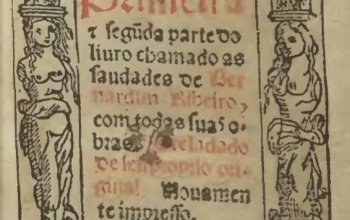 Primeira
τ segũda parte do
liuro chamado as
saudades de Ber
nardim Ribeiro,
com todas suas o-
bras. Treladado
de seu proprio ori
ginal. Nouamen
te impresso.